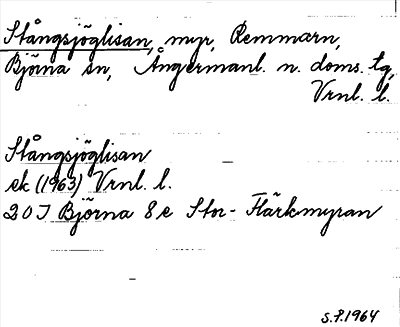 Stångsjöglisan, myr, Remmarn,
Björna sn, Ångermanl. n. doms. tg,
Vrnl. l.
Stångsjöglisan
ek (1963) Vrnl. l.
20J Björna 8e Stor-Flärkmyran
S.P. 1964